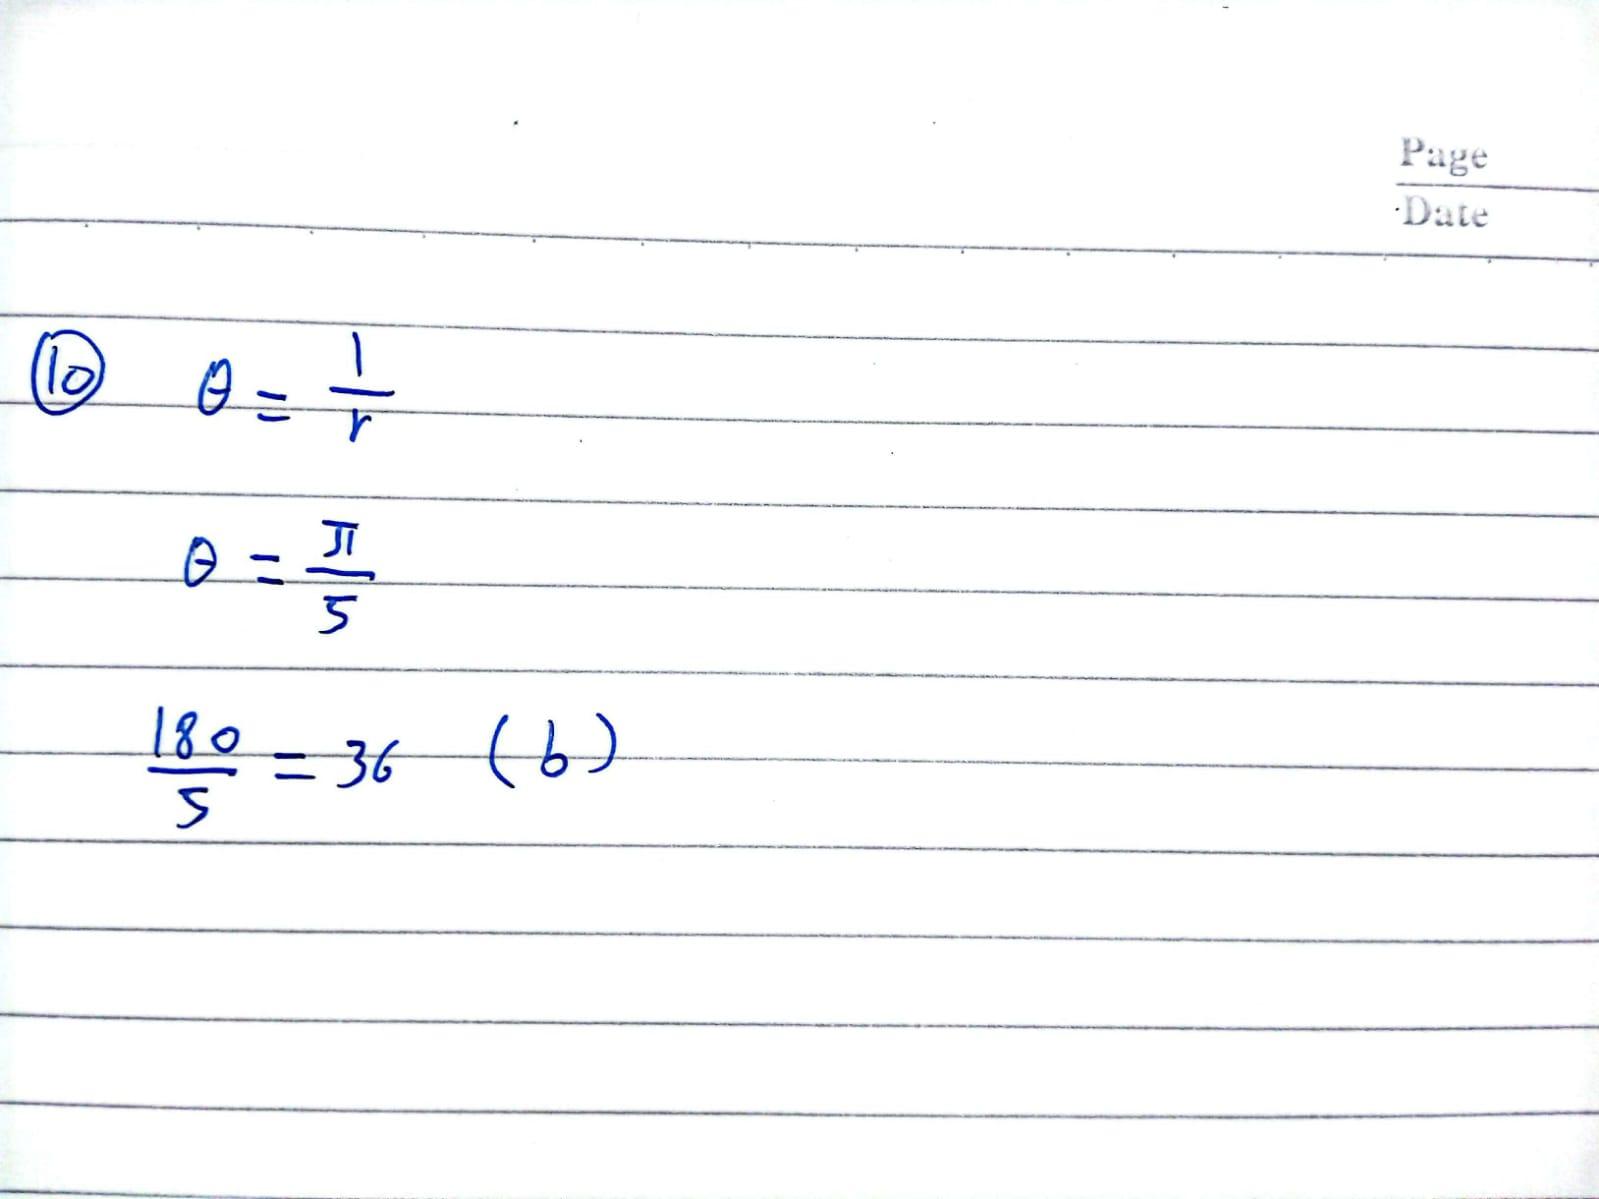 Page
Date
⑩ θ = l/r
θ = π/5
180/5 = 36 (b)